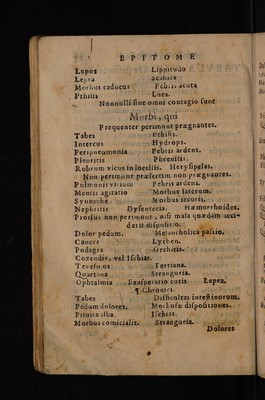 EPITOME
Lupus Lippitudo
Lepra Scabies
Morbus caducus Febris acuta
Pthisis Lues.
Nonnulli sine omni contagio sunt
Morbi, qui
Frequenter perimunt prægnantes.
Tabes Febris.
Intercus Hydrops.
Peripneumonia Febris ardens.
Pleuritis Phrenitis.
Rubrum vicus in locellis. Herysipelas.
Non perimunt præsertim non prægnantes.
Pulmonis vitium Febris ardens.
Mentis agitatio Morbus laterum.
Synanche Morbus iecoris.
Nephritis Dysenteria. Hæmorrhoides.
Prorsus non perimunt, nisi mala quædam acci-
derit dispositio.
Dolor pedum. Melancholica passio.
Cancer Lychen.
Podagra Orchitis.
Coxendix, vel Ischias.
Tenesmus Tertiana.
Quartana Stranguria.
Ophtalmia Exasperatio cotis Lepra.
¶ Chronici.
Tabes Difficultas intestinorum.
Pedum dolores. Morbosæ dispositiones.
Pituita alba. Ischias.
Morbus comicialis. Stranguria.
Dolores